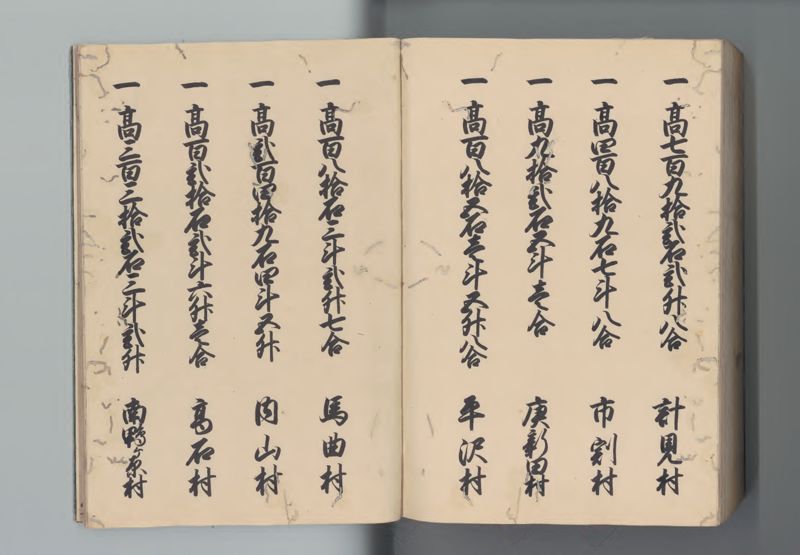 一 高七百九拾弐石弐升八合 計見村
一 高四百八拾九石七斗八合 市割村
一 高九拾弐石五斗壱合 庚新田村
一 高百八拾五石壱斗五升八合 平沢村
一 高百八拾石三斗弐升七合 馬曲村
一 高弐百四拾九石四斗五升 内山村
一 高百弐拾石弐斗六升壱合 高石村
一 高三百三拾弐石三斗弐升 南鴨ヶ原村